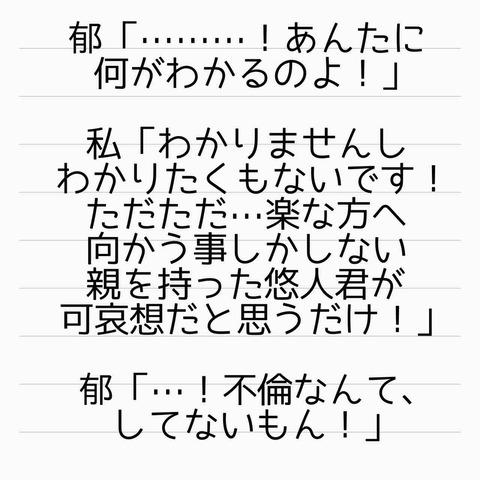 郁「………！あんたに
何がわかるのよ！」
私「わかりませんし
わかりたくもないです！
ただただ…楽な方へ
向かう事しかしない
親を持った悠人君が
可哀想だと思うだけ！」
郁「…！不倫なんて、
してないもん！」